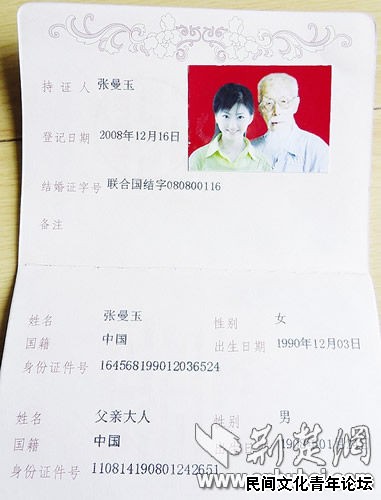 持证人 张曼玉
登记日期 2008年12月16日
结婚证字号 联合国结字080800116
备注
姓名 张曼玉 性别 女
国籍 中国 出生日期 1990年12月03日
身份证件号 164568199012036524
姓名 父亲大人 性别 男
国籍 中国
身份证件号 110814190801242651
荆楚网
民间文化青年论坛